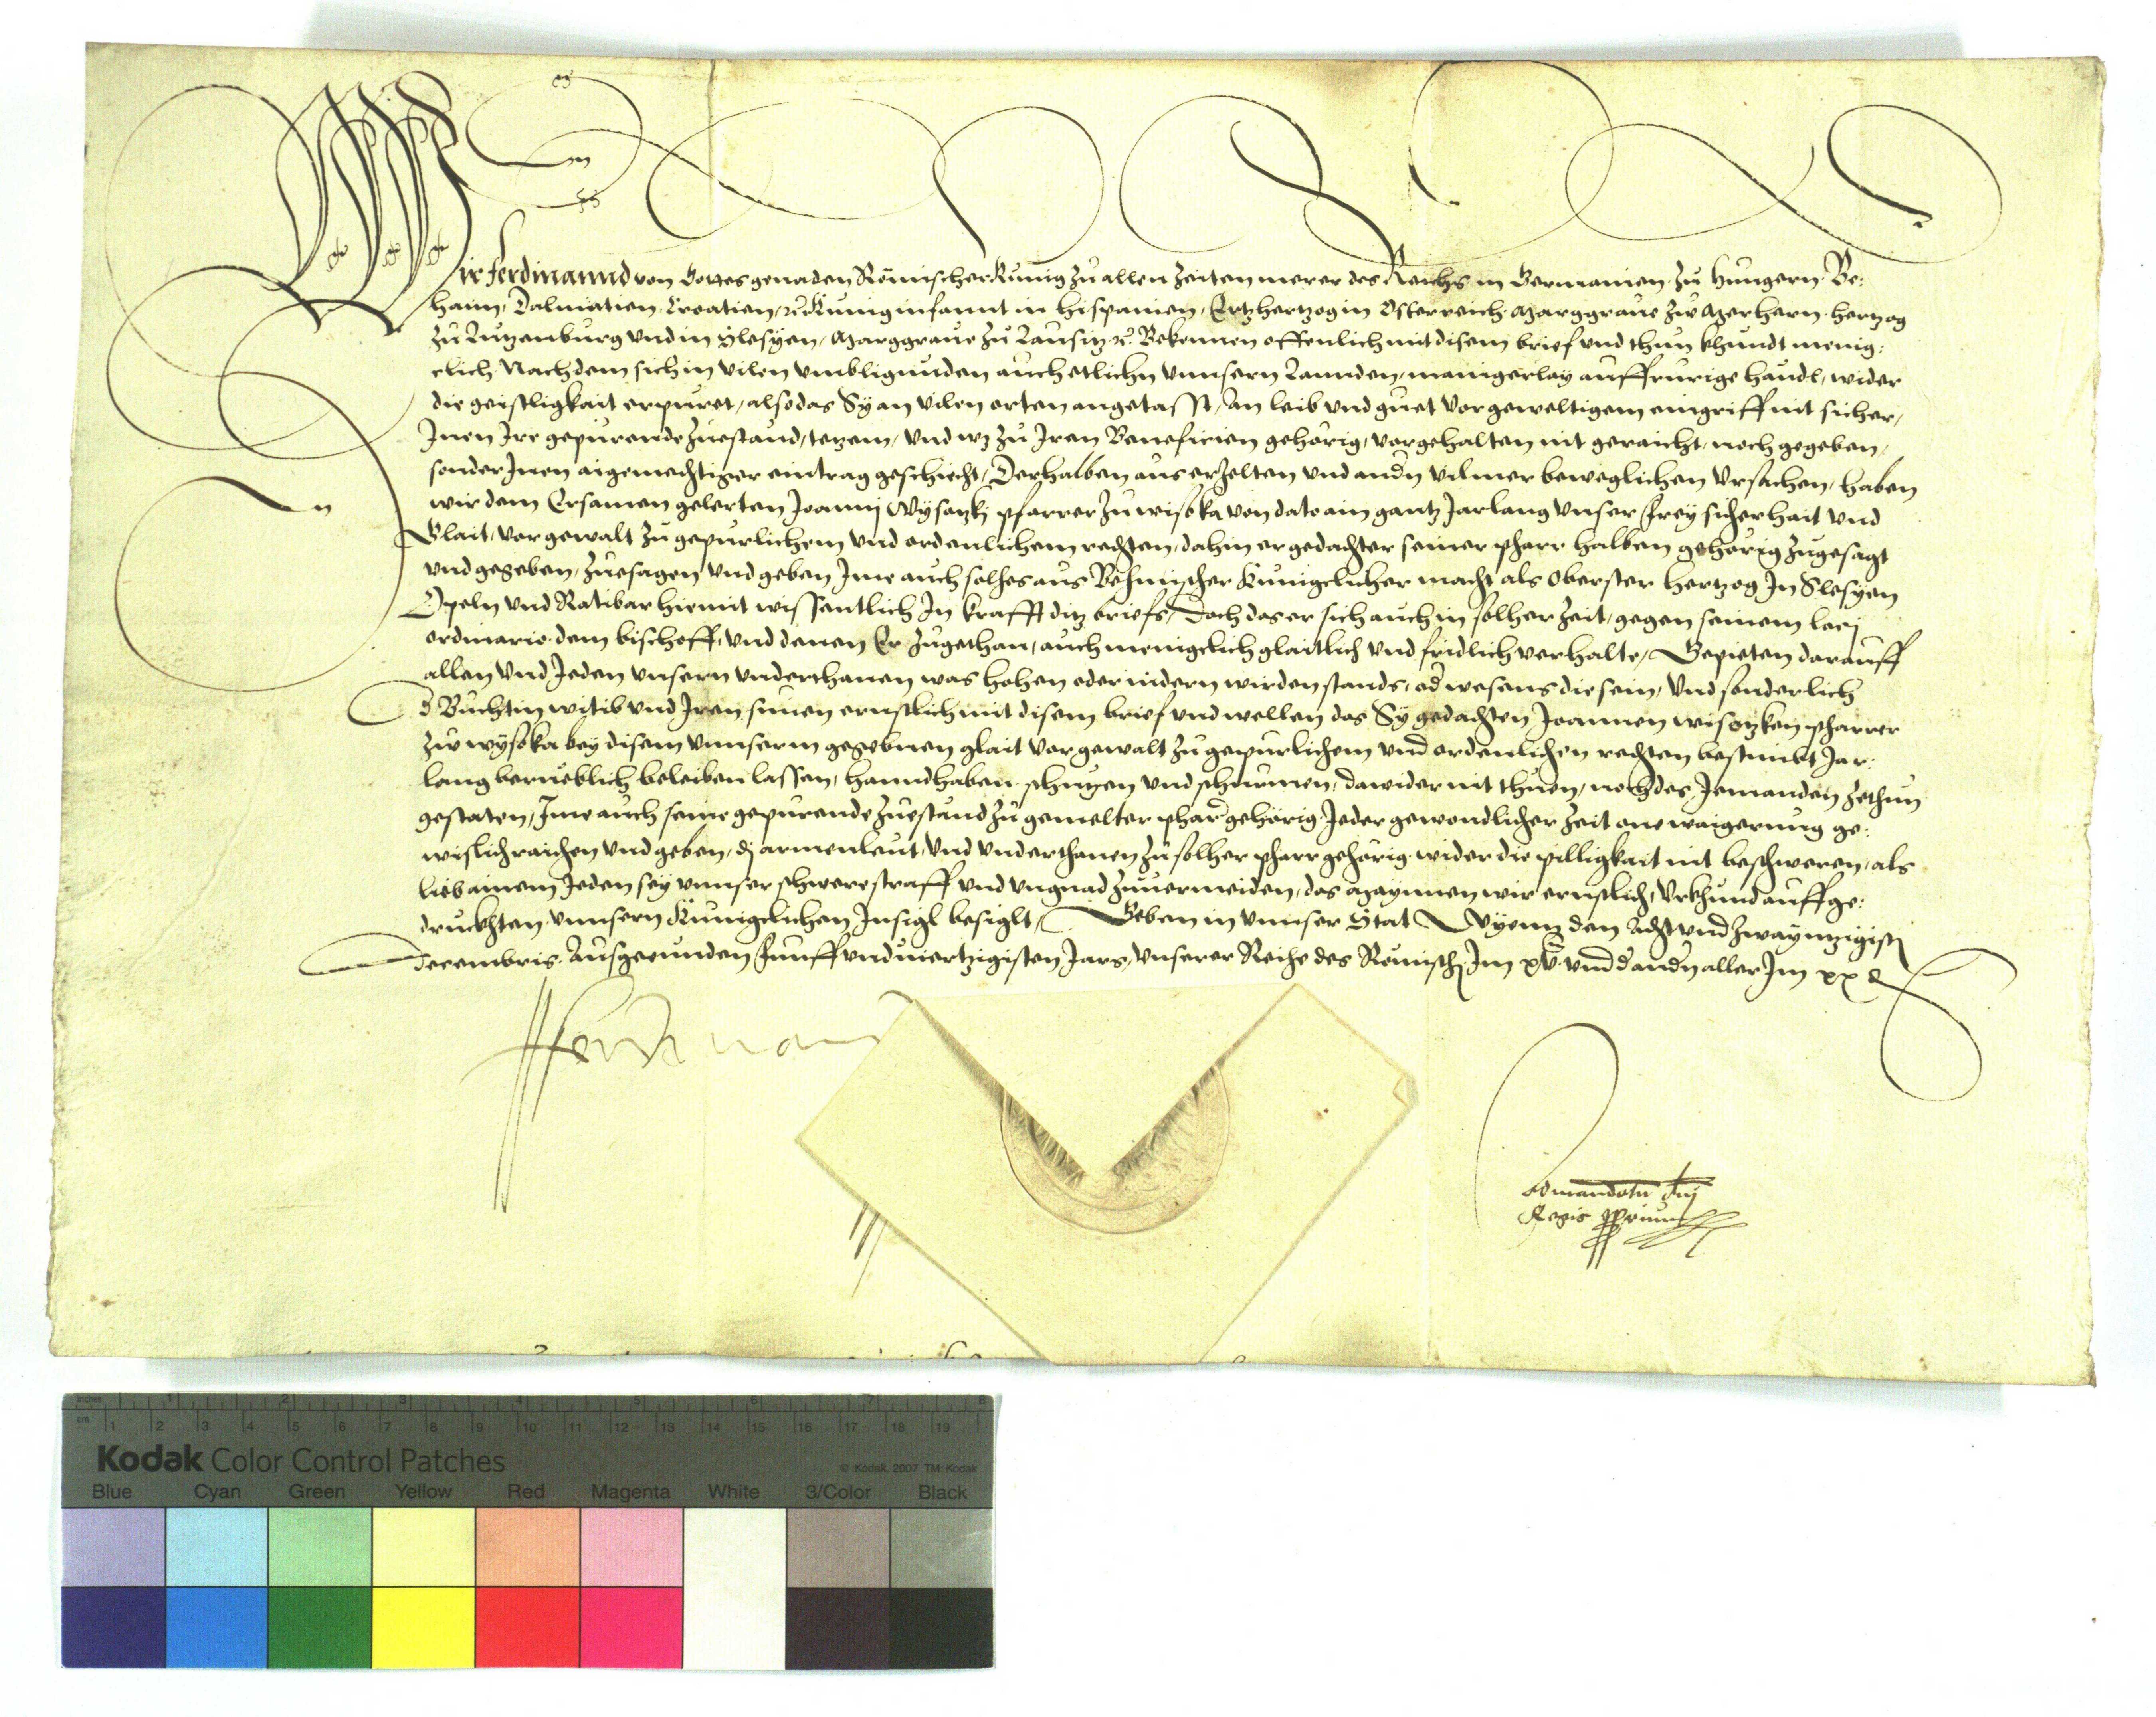 Wir Ferdinannd von Gottes genaden Römischer Kunig zu allen Zeiten merer des Reichs in Germanien zu Hungern Be:
haim, Dalmatien, Croatien, rc. Kunig infannt in Hispanien, Ertzhertzog in Osterreich Marggraue zw Merhern hertzog
zu Lutzenburg vnd in Slesyen, Marggraue zu Lausitz rc. Bekennen offenlich mit disem brief vnd thun khundt menig:
clich Nachdem sich in vilen vmbligunden auch etlichn vnnsern Lannden, maingerlay auffrurige handl, wider
die geistligkait erpuret, also das Sy an vilen orten angetasst, An leib vnd guet vor geweltigem eingriff nit sicher,
Inen Ire gepurende zuestand, tetzem, vnd wz zu Iren Beneficien gehörig, vorgehalten nit geraicht, noch gegeben,
sonder Inen aigemechtiger eintrag geschiecht, Derhalben aus erzelten vnd andn vilmer beweglichen vrsachen, haben
wir dem Ersamen gelerten Joannj Wysatzkj pfarrer zu wisoka von dato ain gantz Jar lang vnser frey sicherhait vnd
Glait, vor gewalt zu gepurlichem vnd ordenlichem rechten, dahin er gedachter seiner pharr halben gehörig zugesagt
vnd gegeben, zuesagen vnd geben Ime auch solhes aus Behmischer Kunigclicher macht als Oberster hertzog In Slesyen
Opeln vnd Ratibar hiemit wissentlich In krafft ditz briefs, Doch das er sich auch in solher zeit, gegen seinem locj
ordinario dem bischoff, vnd denen Er zugethan, auch menigclich glaitlich vnd fridlich verhalte, Gepieten darauff
allen vnd Jeden vnsern vnderthanen was hohen oder nidern wirden stands, od wesens die sein, vnd sonderlich
d Buchtin witib vnd Iren sunen ernstlich mit disem brief vnd wellen das Sy gedachten Joannen wisotzken pharrer
zw wysoka bey disem vnnserm gegebnen glait vor gewalt zu gepurlichem vnd ordenlichen rechten bestimbt Jar:
lang berueblich beleiben lassen, hanndhaben schutzen vnd schirmen, dawider nit thuen, noch des Jemanden zethun
gestaten, Ime auch seine gepurende zuestand zu gemelter phar gehörig Jeder gewondlicher zeit one waigerung ge:
wislich raichen vnd geben, dj armenleut, vnd vnderthanen zu solher pharr gehörig wider die pilligkait nit beschweren, als
lieb ainem Jeden sey vnnser schwere straff vnd vngnad zuuermeiden, das maynnen wir ernstlich, vrkhund auffge:
druckhten vnnsern Kunigclichen Insigl besiglt, Geben in vnnser Stat Wyenn den Acht vnd zwayntzigistn
Decembris. Im Funff vnd viertzigisten Jars, vnserer Reiche des Römischn Im xv vnd d andn aller Im xx
Ferdinannd
Ad mandatu dnj
Regis pprium
inches 1 2 3 4 5 6 7 8
cm 1 2 3 4 5 6 7 8 9 10 11 12 13 14 15 16 17 18 19
Kodak Color Control Patches © Kodak, 2007 TM: Kodak
Blue Cyan Green Yellow Red Magenta White 3/Color Black